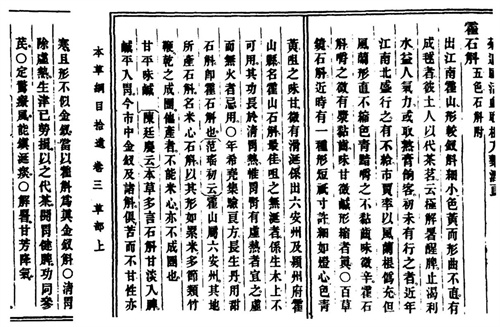 霍石斛　五色石斛附
出江南霍山形較釵斛細小色黃而形曲不直有
成毬者彼土人以代茶茗云極解暑醒脾止渴利
水益人氣力或取熬膏餉客初未有行之者近年
江南北盛行之有不給市賈率以風蘭根偽充但
風蘭形直不縮色青黯嚼之不黏齒味微辛霍石
斛嚼之微有漿黏齒味甘微鹹形縮者真○百草
鏡石斛近時有一種形短祇寸許細如燈心色青
黃咀之味甘微有滑涎係出六安州及潁州府霍
山縣名霍山石斛最佳咀之無涎者係生木上不
可用其功長於清胃熱惟胃腎有虛熱者宜之虛
而無火者忌用○年希堯集驗良方長生丹用甜
石斛即霍石斛也范瑤初云霍山屬六安州其地
所產石斛名米心石斛以其形如纍米多節類竹
鞭乾之成團他產者不能米心亦不成團也
甘平味鹹　陳廷慶云本草多言石斛甘淡入脾
鹹平入胃今市中金釵及諸斛俱苦而不甘性亦
本草綱目拾遺　卷三　草部上
寒且形不似金釵當以霍斛為真金釵斛○清胃
除虛熱生津已勞損以之代茶開胃健脾功同參
芪○定驚療風能鎮涎痰○解暑甘芳降氣